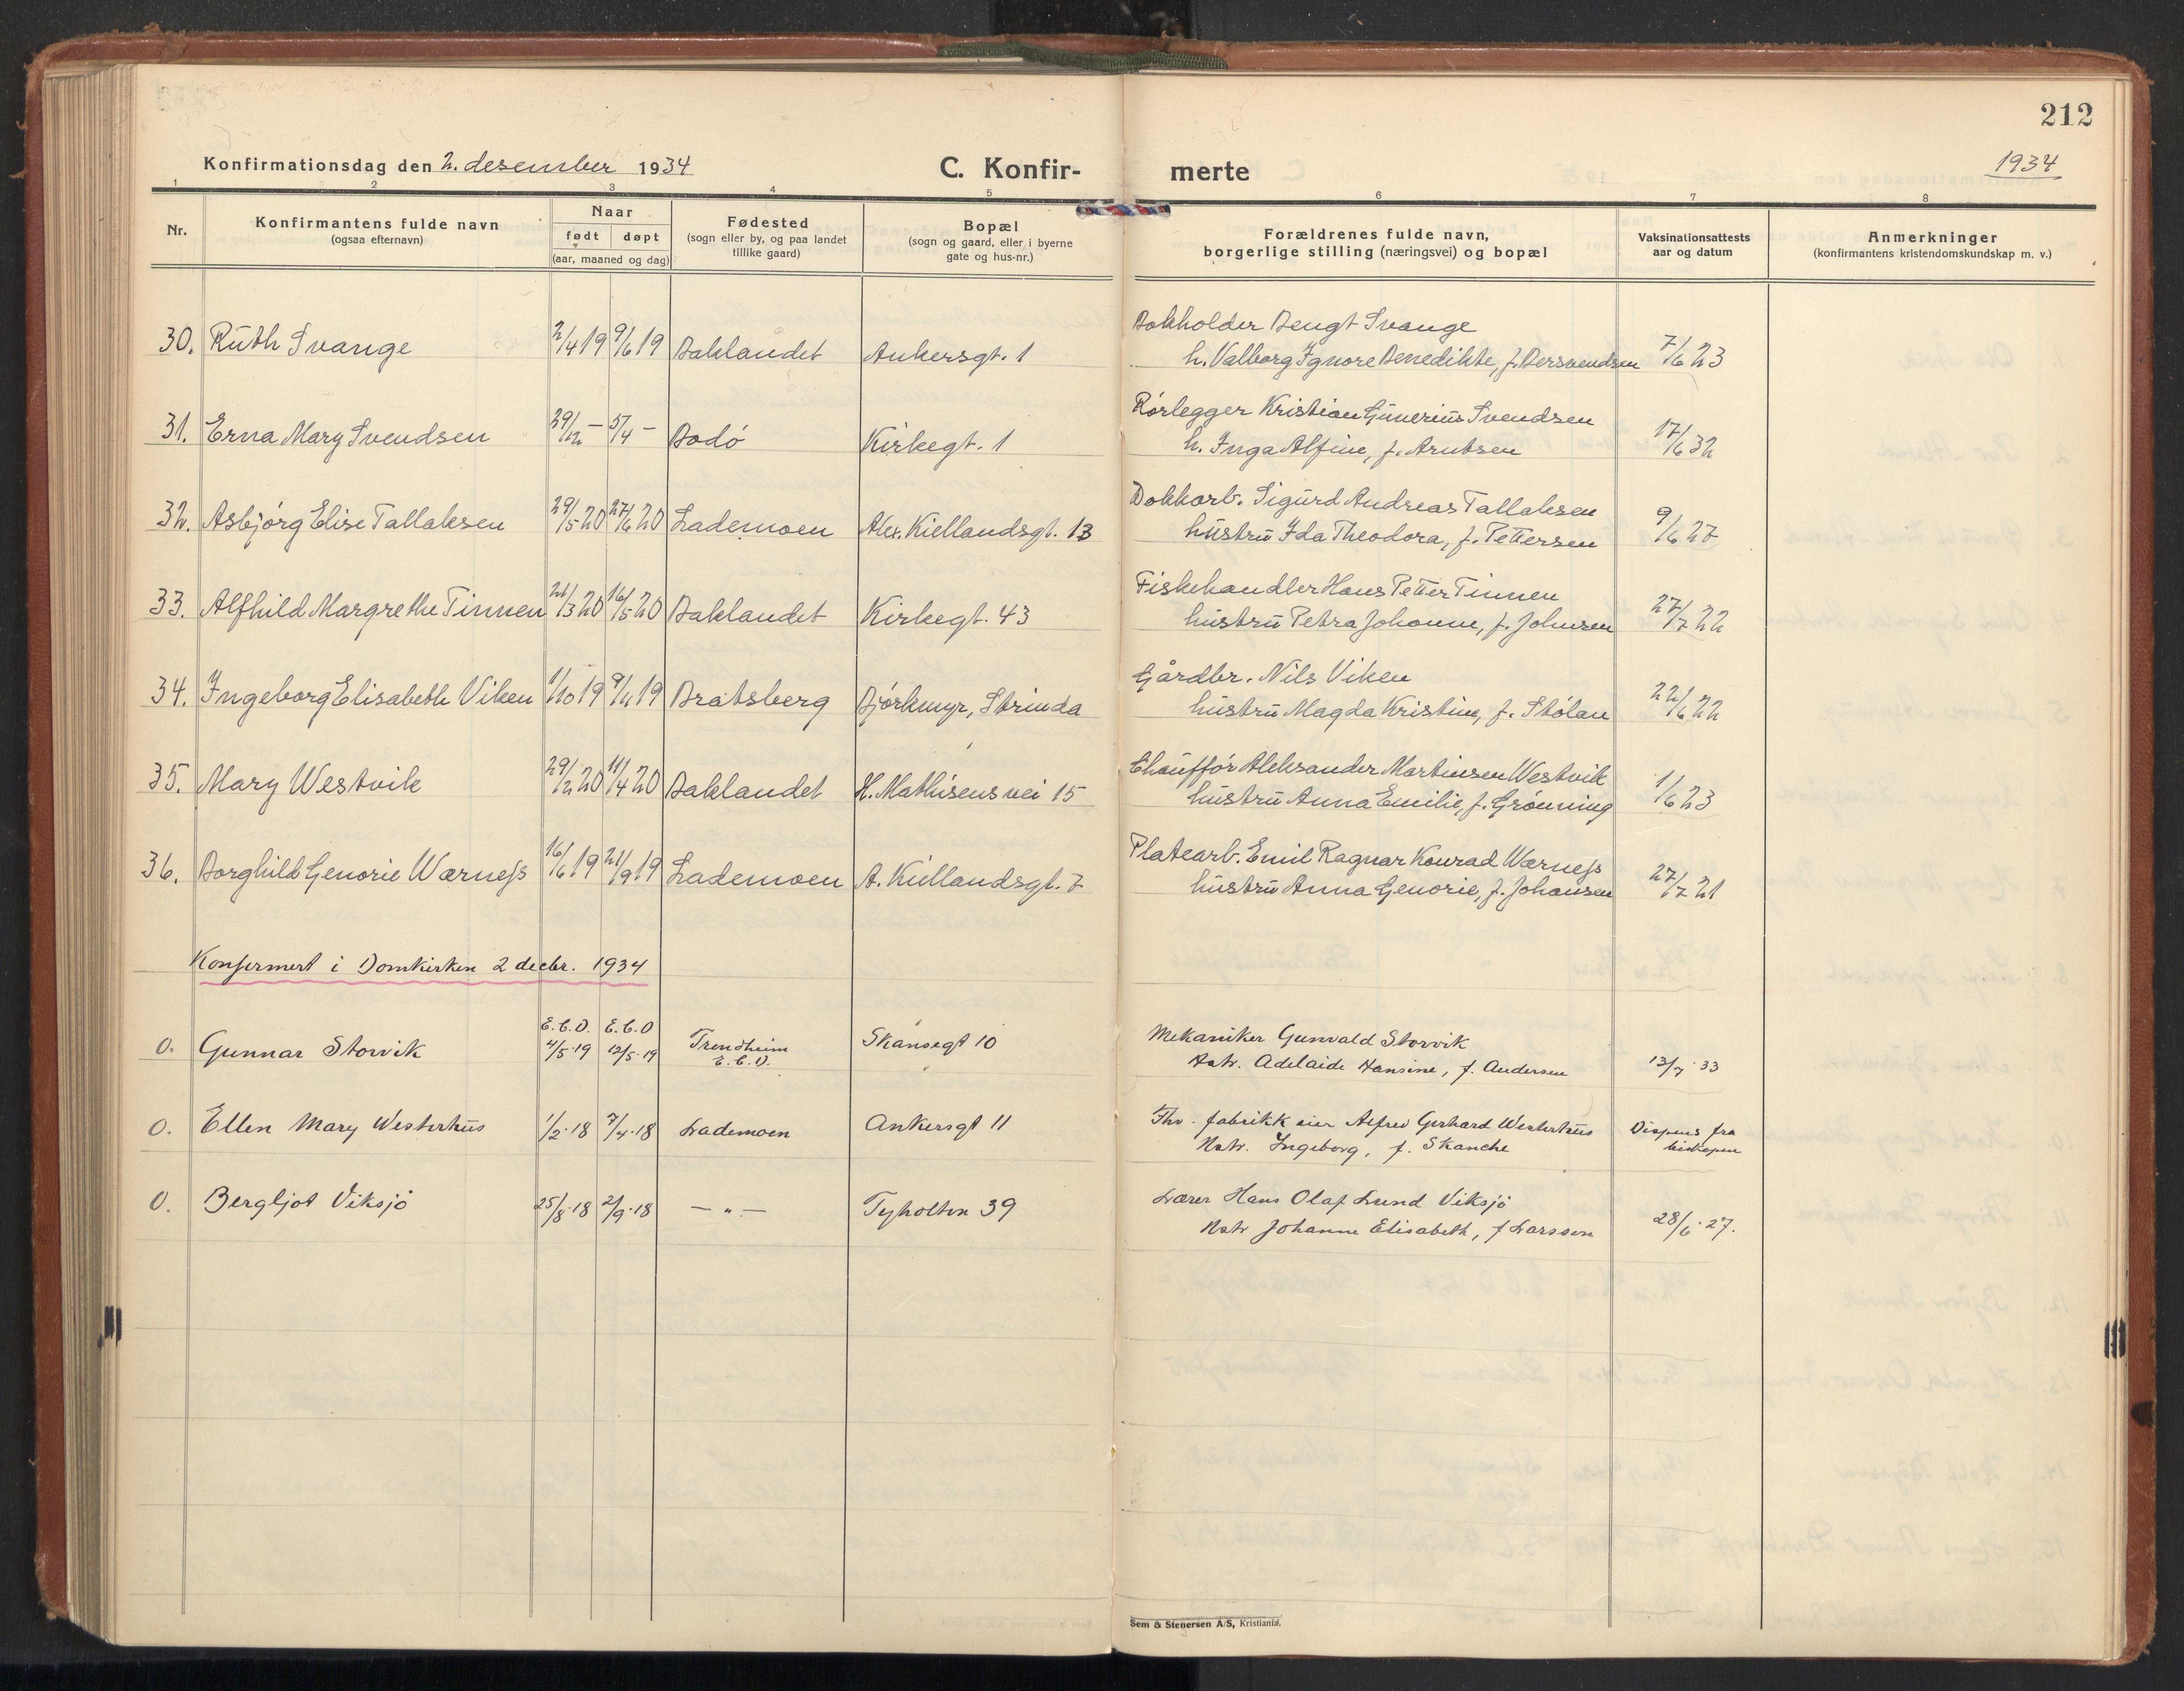 212
Konfirmationsdag den 2. desember 1934
C. Konfir-
merte
1934
1 2 3 4 5 6 7 8
Nr.
Konfirmantens fulde navn
(ogsaa efternavn)
Naar
født døpt
(aar, maaned og dag)
Fødested
(sogn eller by, og paa landet
tillike gaard)
Bopæl
(sogn og gaard, eller i byerne
gate og hus-nr.)
Forældrenes fulde navn,
borgerlige stilling (næringsvei) og bopæl
Vaksinationsattests
aar og datum
Anmerkninger
(konfirmantens kristendomskundskap m. v.)
30. Ruth Svange 2/4 19 9/6 19 Baklandet Ankersgt. 1
Bokholder Bengt Svange
h. Valborg Ignore Benedikte, f. Bersvendsen 7/6 23
31. Erna Mary Svendsen 29/12 — 5/4 — Bodó Kirkegt. 1
Rórlegger Kristian Gunerius Svendsen
h. Inga Alfine, f. Arntsen 17/6 32
32. Asbjórg Elise Tallaksen 29/5 20 27/6 20 Lademoen Alex. Kiellandsgt. 13
Dokkarb. Sigurd Andreas Tallaksen
hustru Ida Theodora, f. Pettersen 9/6 27
33. Alfhild Margrethe Tinnen 21/3 20 16/5 20 Baklandet Kirkegt. 43
Fiskehandler Hans Petter Tinnen
hustru Petra Johanne, f. Johnsen 27/7 22
34. Ingeborg Elisabeth Viken 1/10 19 9/11 19 Bratsberg Bjórkmyr, Strinda
Gårdbr. Nils Viken
hustru Magda Kristine, f. Stólan 22/6 22
35. Mary Westvik 29/2 20 11/4 20 Baklandet H. Mathisens vei 15
Chauffór Aleksander Martinsen Westvik
hustru Anna Emilie, f. Grónning 1/6 23
36. Borghild Genorie Wærness 16/6 19 21/9 19 Lademoen A. Kiellandsgt. 7
Platearb. Emil Ragnar Konrad Wærness
hustru Anna Genorie, f. Johansen 27/7 21
Konfirmert i Domkirken 2 decbr. 1934
0. Gunnar Storvik E.C.D. 4/5·19 E.C.D 12/5·19 Trondheim E.C.D. Skansegt 10
Mekaniker Gunvald Storvik
Hstr. Adelaide Hansine, f. Andersen 13/7·33
0. Ellen Mary Westerhus 1/2·18 7/4·18 Lademoen Ankersgt 11
Thv. fabrikkeier Alfred Gerhard Westerhus
Hstr. Ingeborg, f. Skanche
Dispens fra
biskopen
0. Bergljot Viksjö 25/8·18 2/9·18 — " — Tyholtvn 39
Lærer Hans Olaf Lund Viksjö
Hstr Johanne Elisabeth, f Larssen 28/6·27.
Sem & Stenersen A/S, Kristiania.